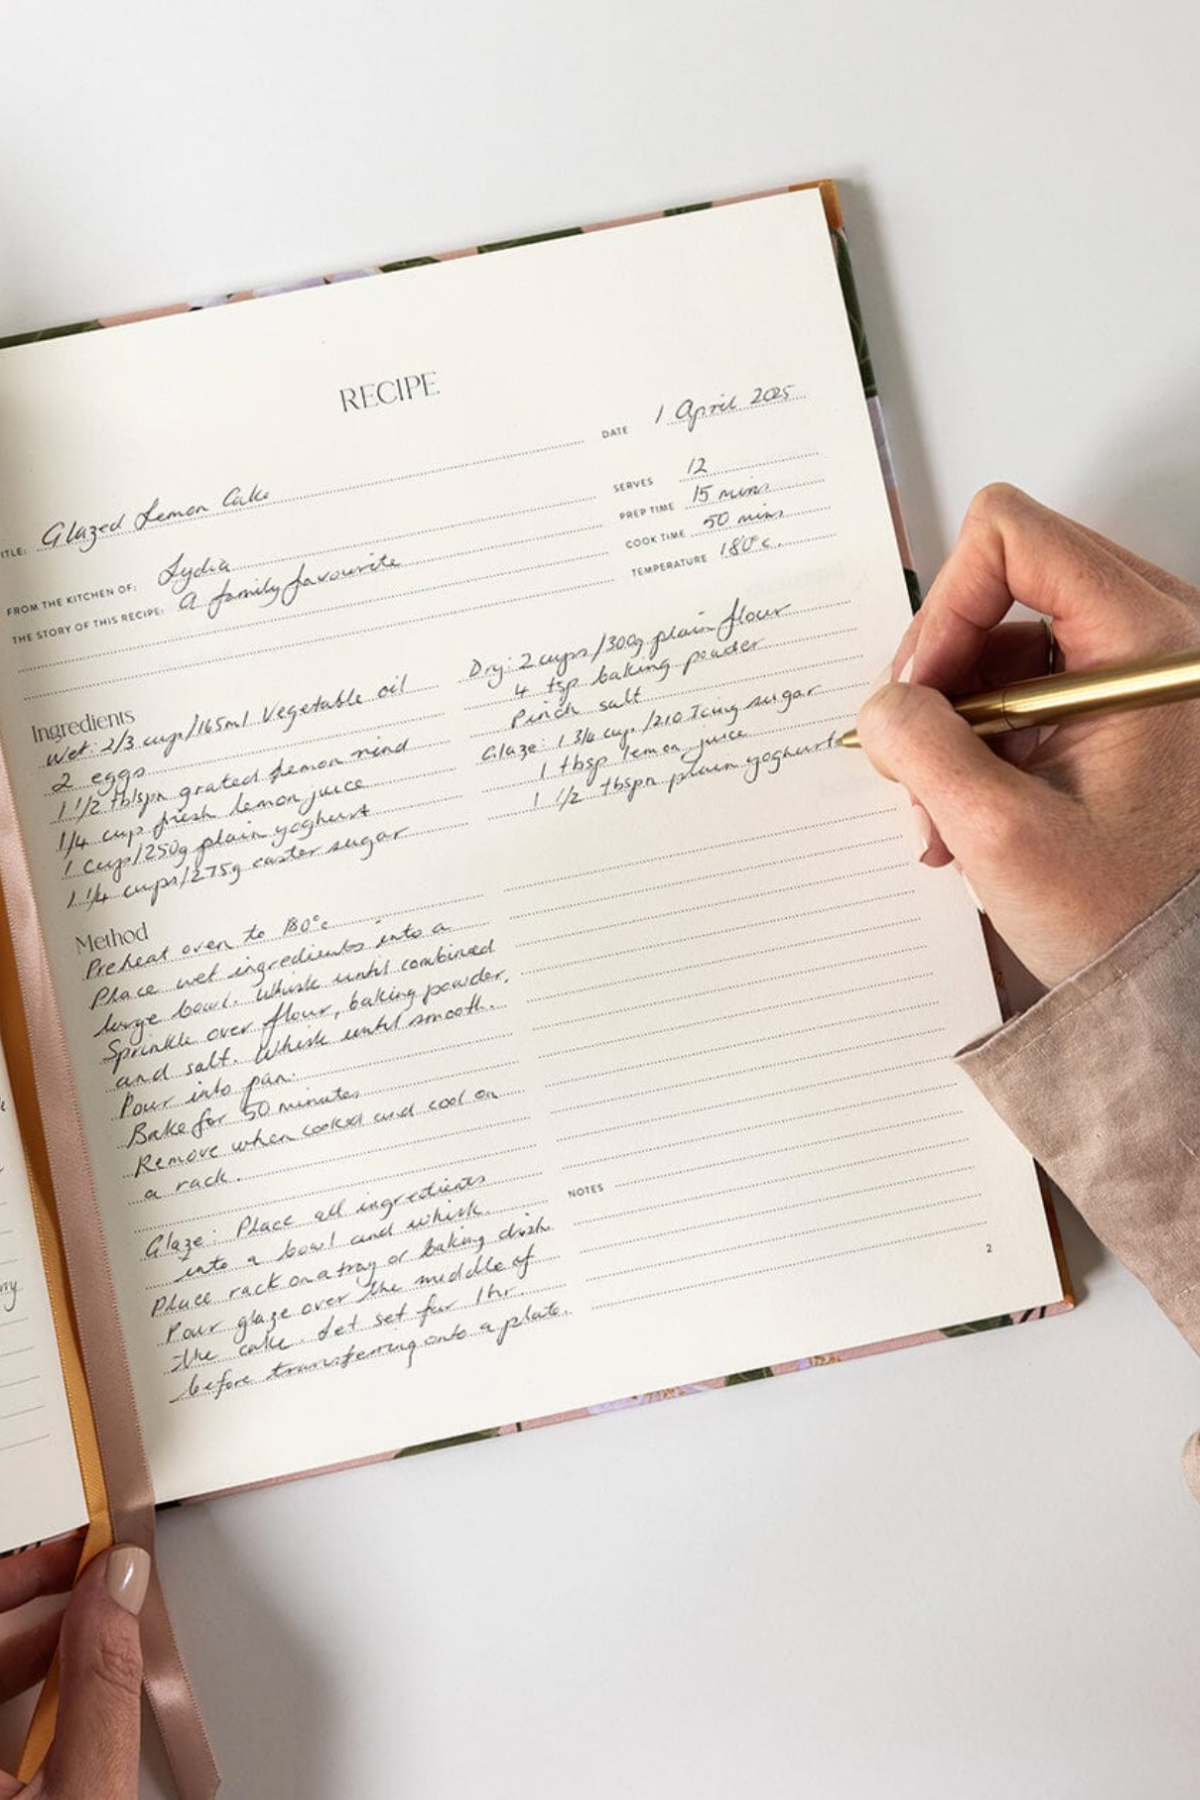 RECIPE
DATE 1 April 2025
ITLE: Glazed Lemon Cake
SERVES 12
PREP TIME 15 mins
COOK TIME 50 mins
TEMPERATURE 180°c.
FROM THE KITCHEN OF: Lydia
THE STORY OF THIS RECIPE: A family favourite
Ingredients
Wet: 2/3 cup/165ml Vegetable oil
2 eggs
1 1/2 tblspn grated lemon rind
1/4 cup fresh lemon juice
1 cup/250g plain yoghurt
1 1/4 cups/275g caster sugar
Dry: 2 cups/300g plain flour
4 tsp baking powder
Pinch salt
Glaze: 1 3/4 cup/210 Icing sugar
1 tbsp lemon juice
1 1/2 tbspn plain yoghurt
Method
Preheat oven to 180°c
Place wet ingredients into a
large bowl. Whisk until combined
Sprinkle over flour, baking powder,
and salt. Whisk until smooth.
Pour into pan.
Bake for 50 minutes
Remove when cooked and cool on
a rack.
Glaze: Place all ingredients
into a bowl and whisk.
Place rack on a tray or baking dish
Pour glaze over the middle of
the cake. Let set for 1hr.
before transferring onto a plate.
NOTES
2